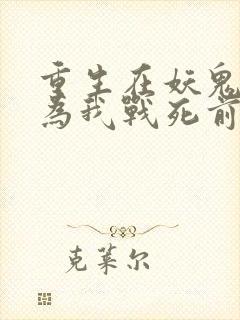 重生在妖鬼
為我戰死前
克萊尔